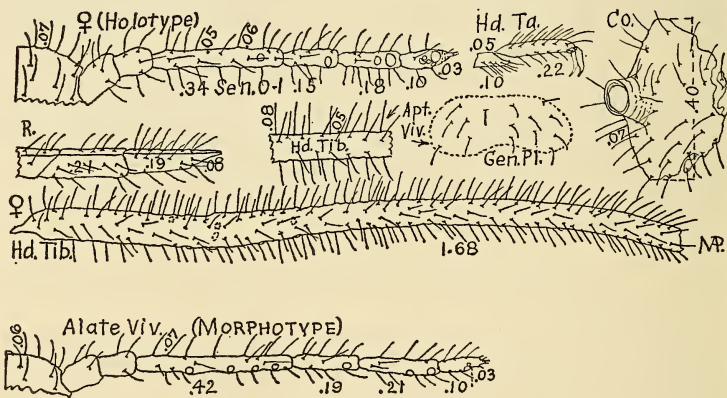 ♀ (Holotype)
.07
.05
.06
.34 Sen. 0-1 .15 .18 .10 .03
Hd. Ta.
.05
.10 .22
Co.
.40
.07
R.
.21 .19 .08
.08
.05
Hd. Tib.
Apt.
Viv.
Gen. Pl.
♀
Hd. Tib.
1.68
MP.
Alate Viv. (MORPHOTYPE)
.06
.07
.42 .19 .21 .10 .03